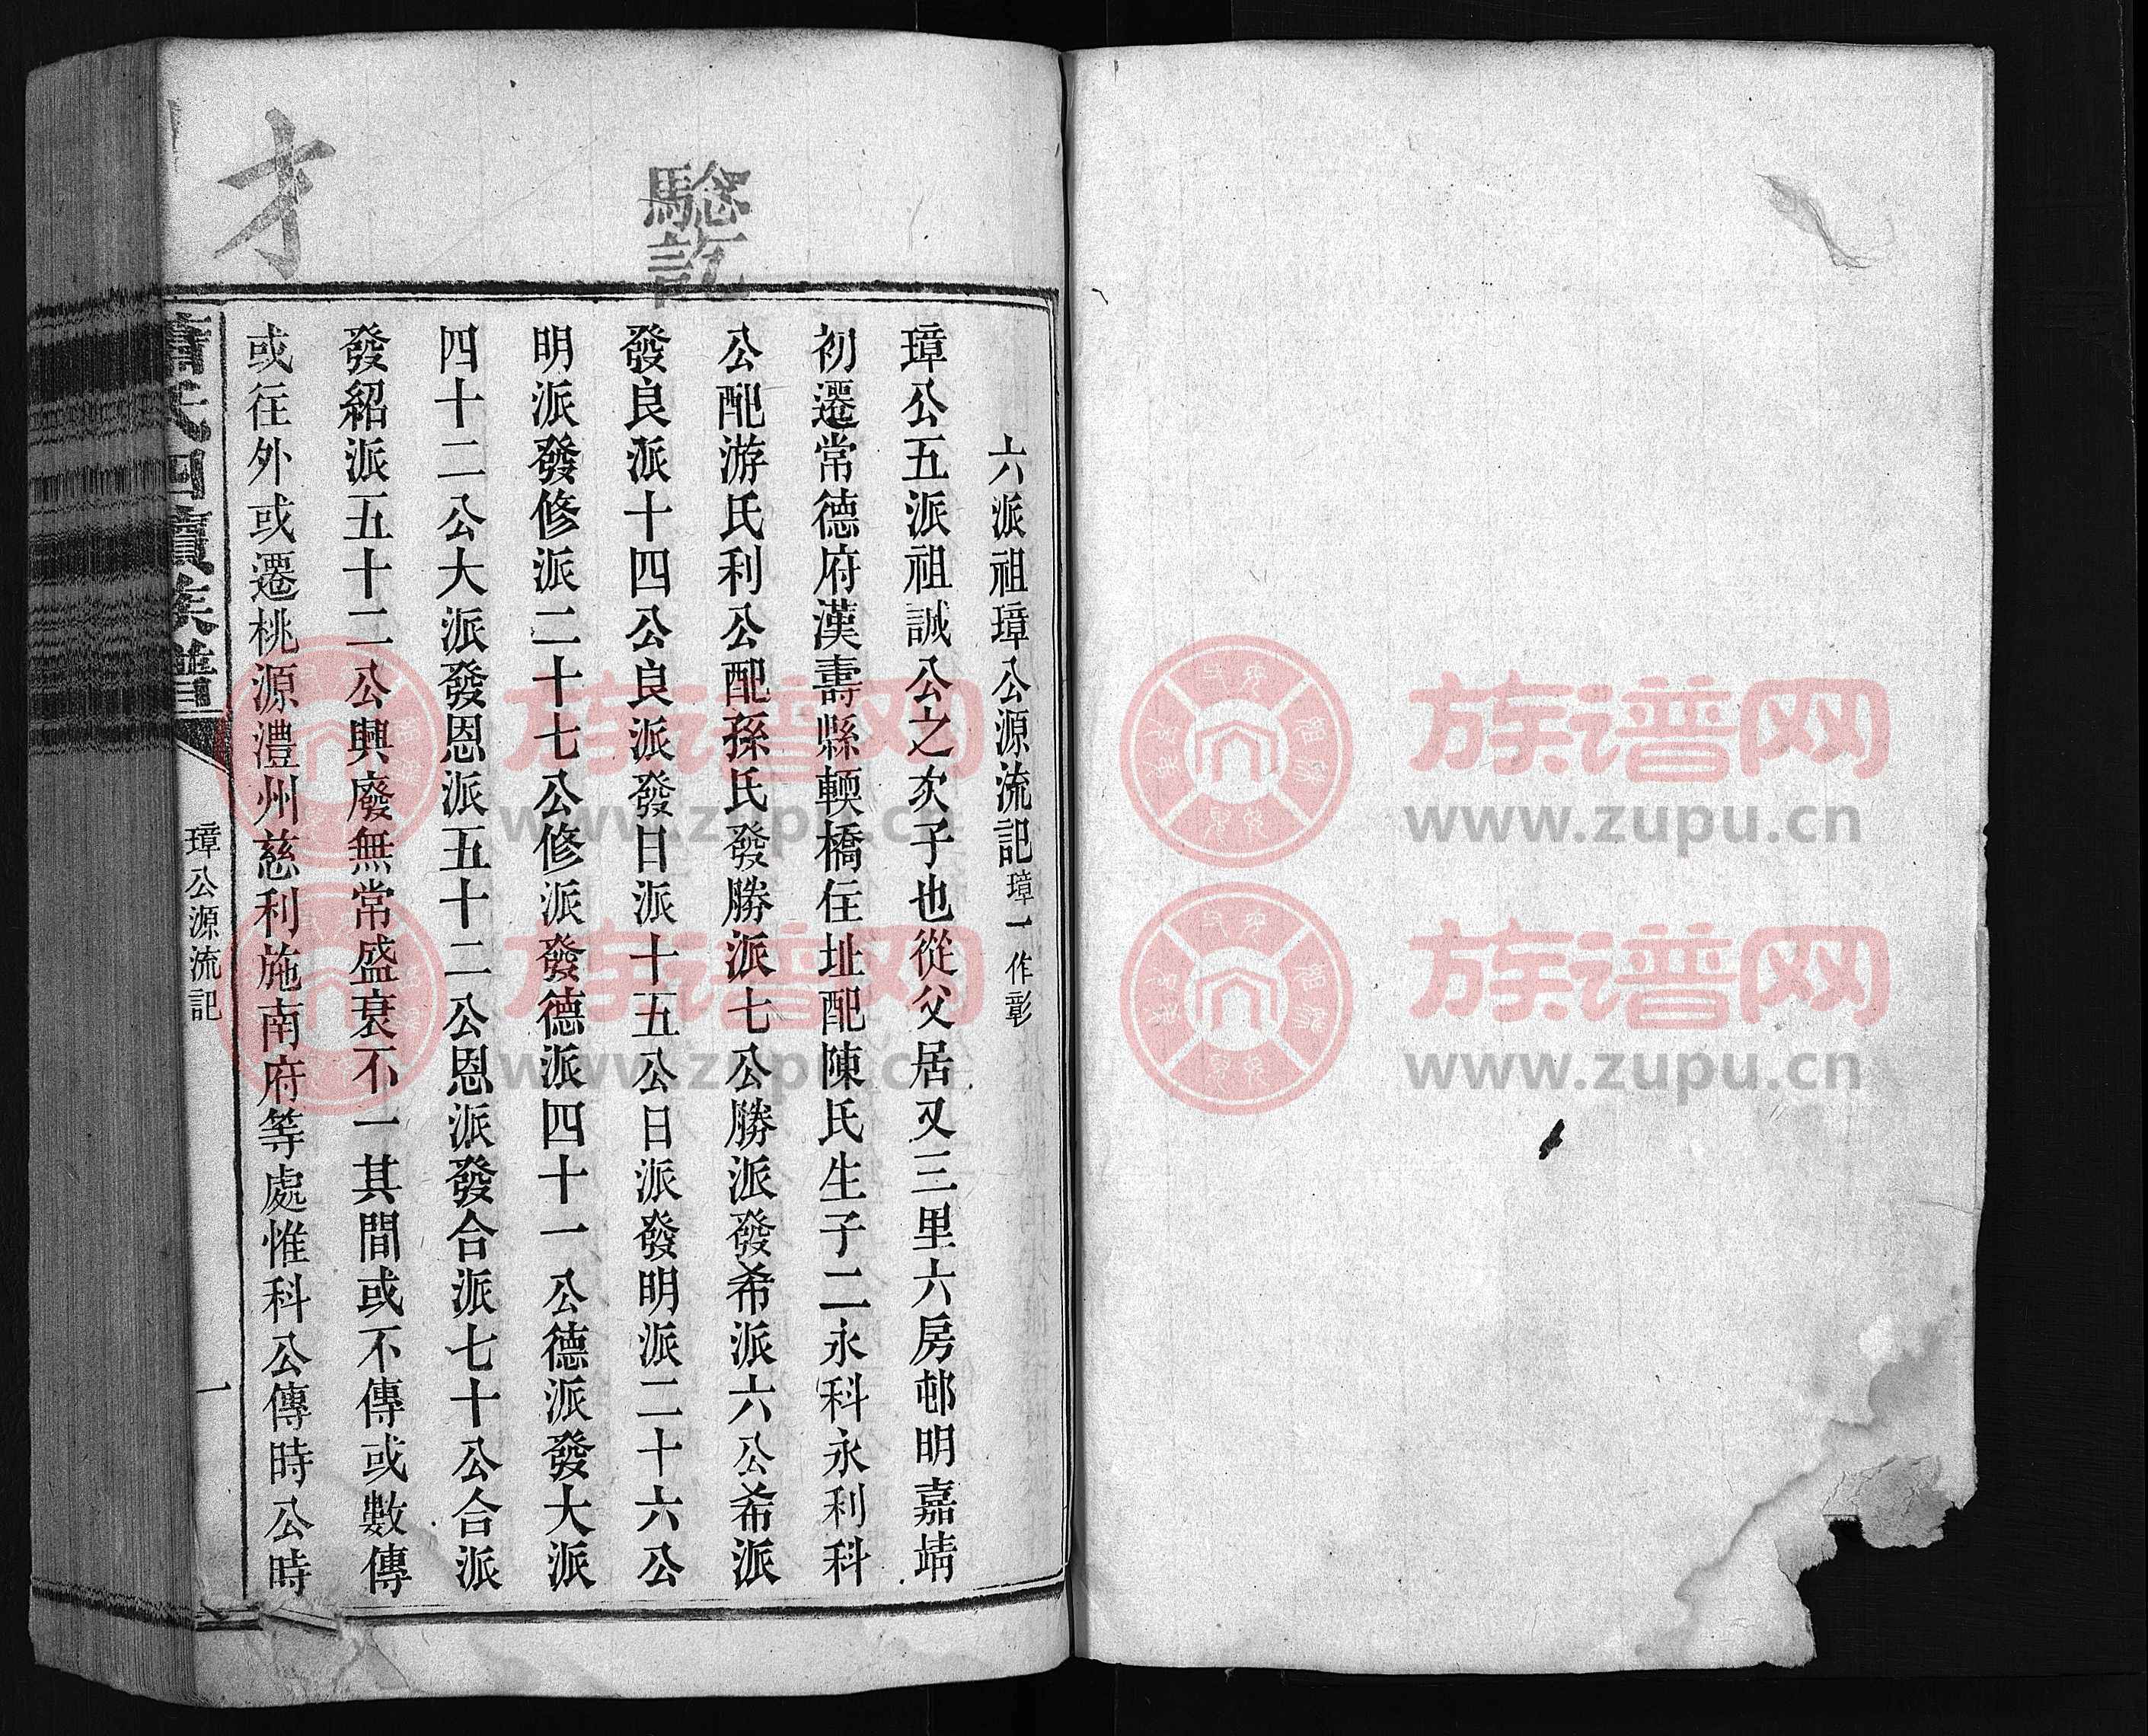 才
驗訖
六派祖璋公源流記璋一作彰
璋公五派祖誠公之次子也從父居又三里六房邨明嘉靖
初遷常德府漢壽縣輭橋住址配陳氏生子二永科永利科
公配游氏利公配孫氏發勝派七公勝派發希派六公希派
發良派十四公良派發日派十五公日派發明派二十六公
明派發修派二十七公修派發德派四十一公德派發大派
四十二公大派發恩派五十二公恩派發合派七十公合派
發紹派五十二公興廢無常盛衰不一其間或不傳或數傳
或往外或遷桃源澧州慈利施南府等處惟科公傳時公時
蕭氏四續族譜
璋公源流記
一
族谱网
www.zupu.cn
族谱网
www.zupu.cn
族谱网
www.zupu.cn
族谱网
www.zupu.cn